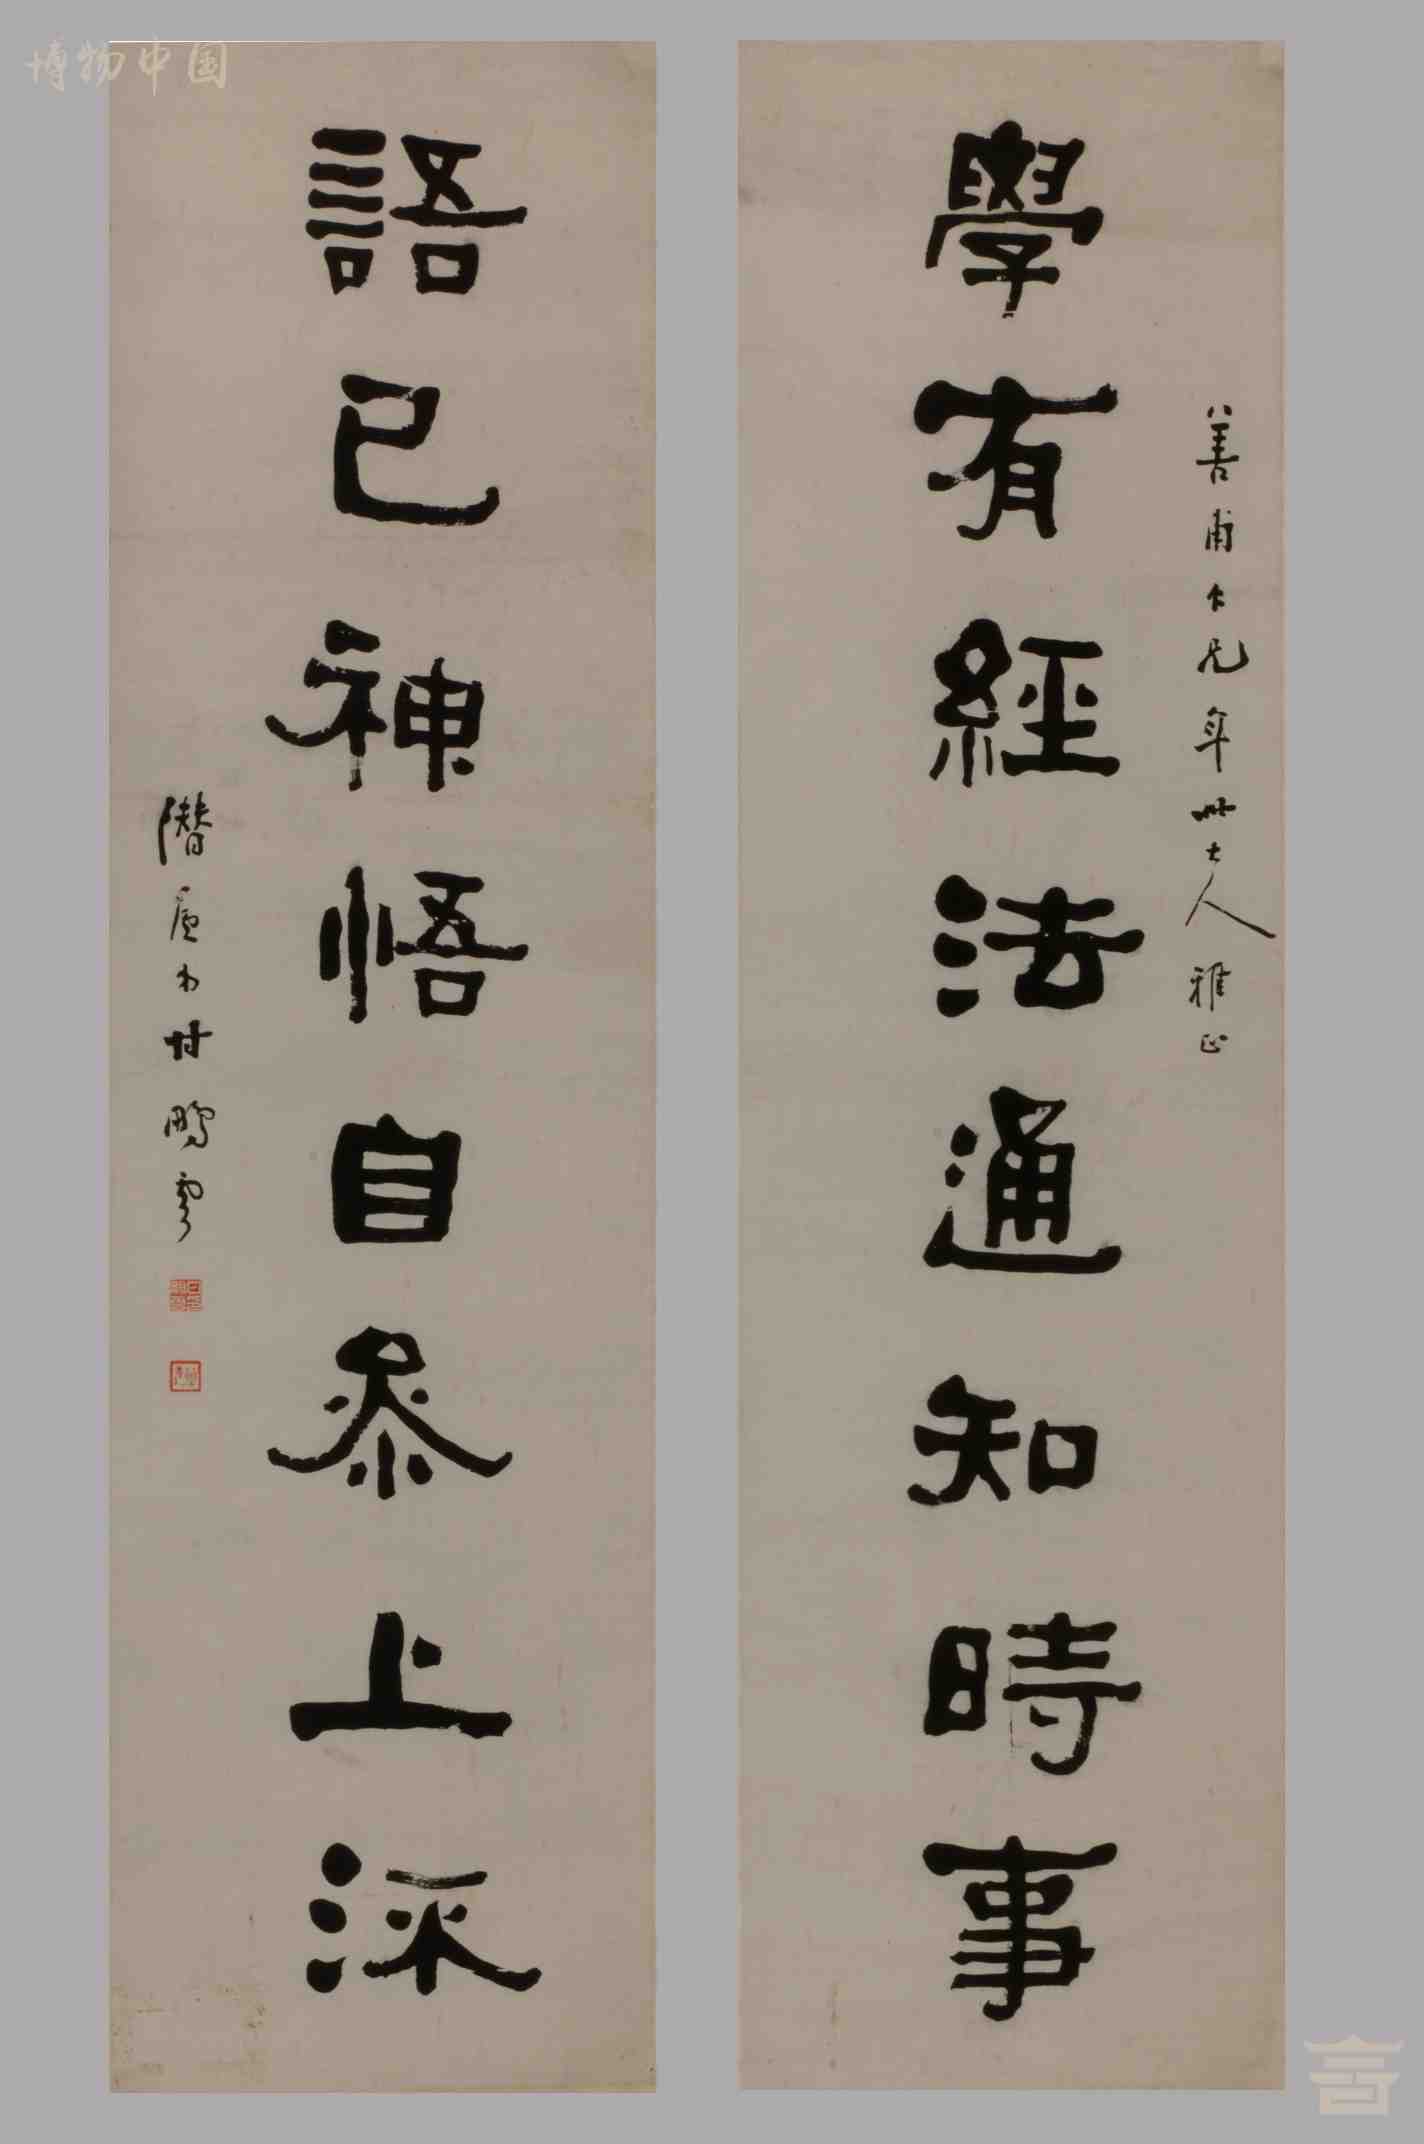 博物中国
學有經法通知時事
善甫大兄年世大人雅正
語已神悟自參上流
潛廬弟甘鵬雲